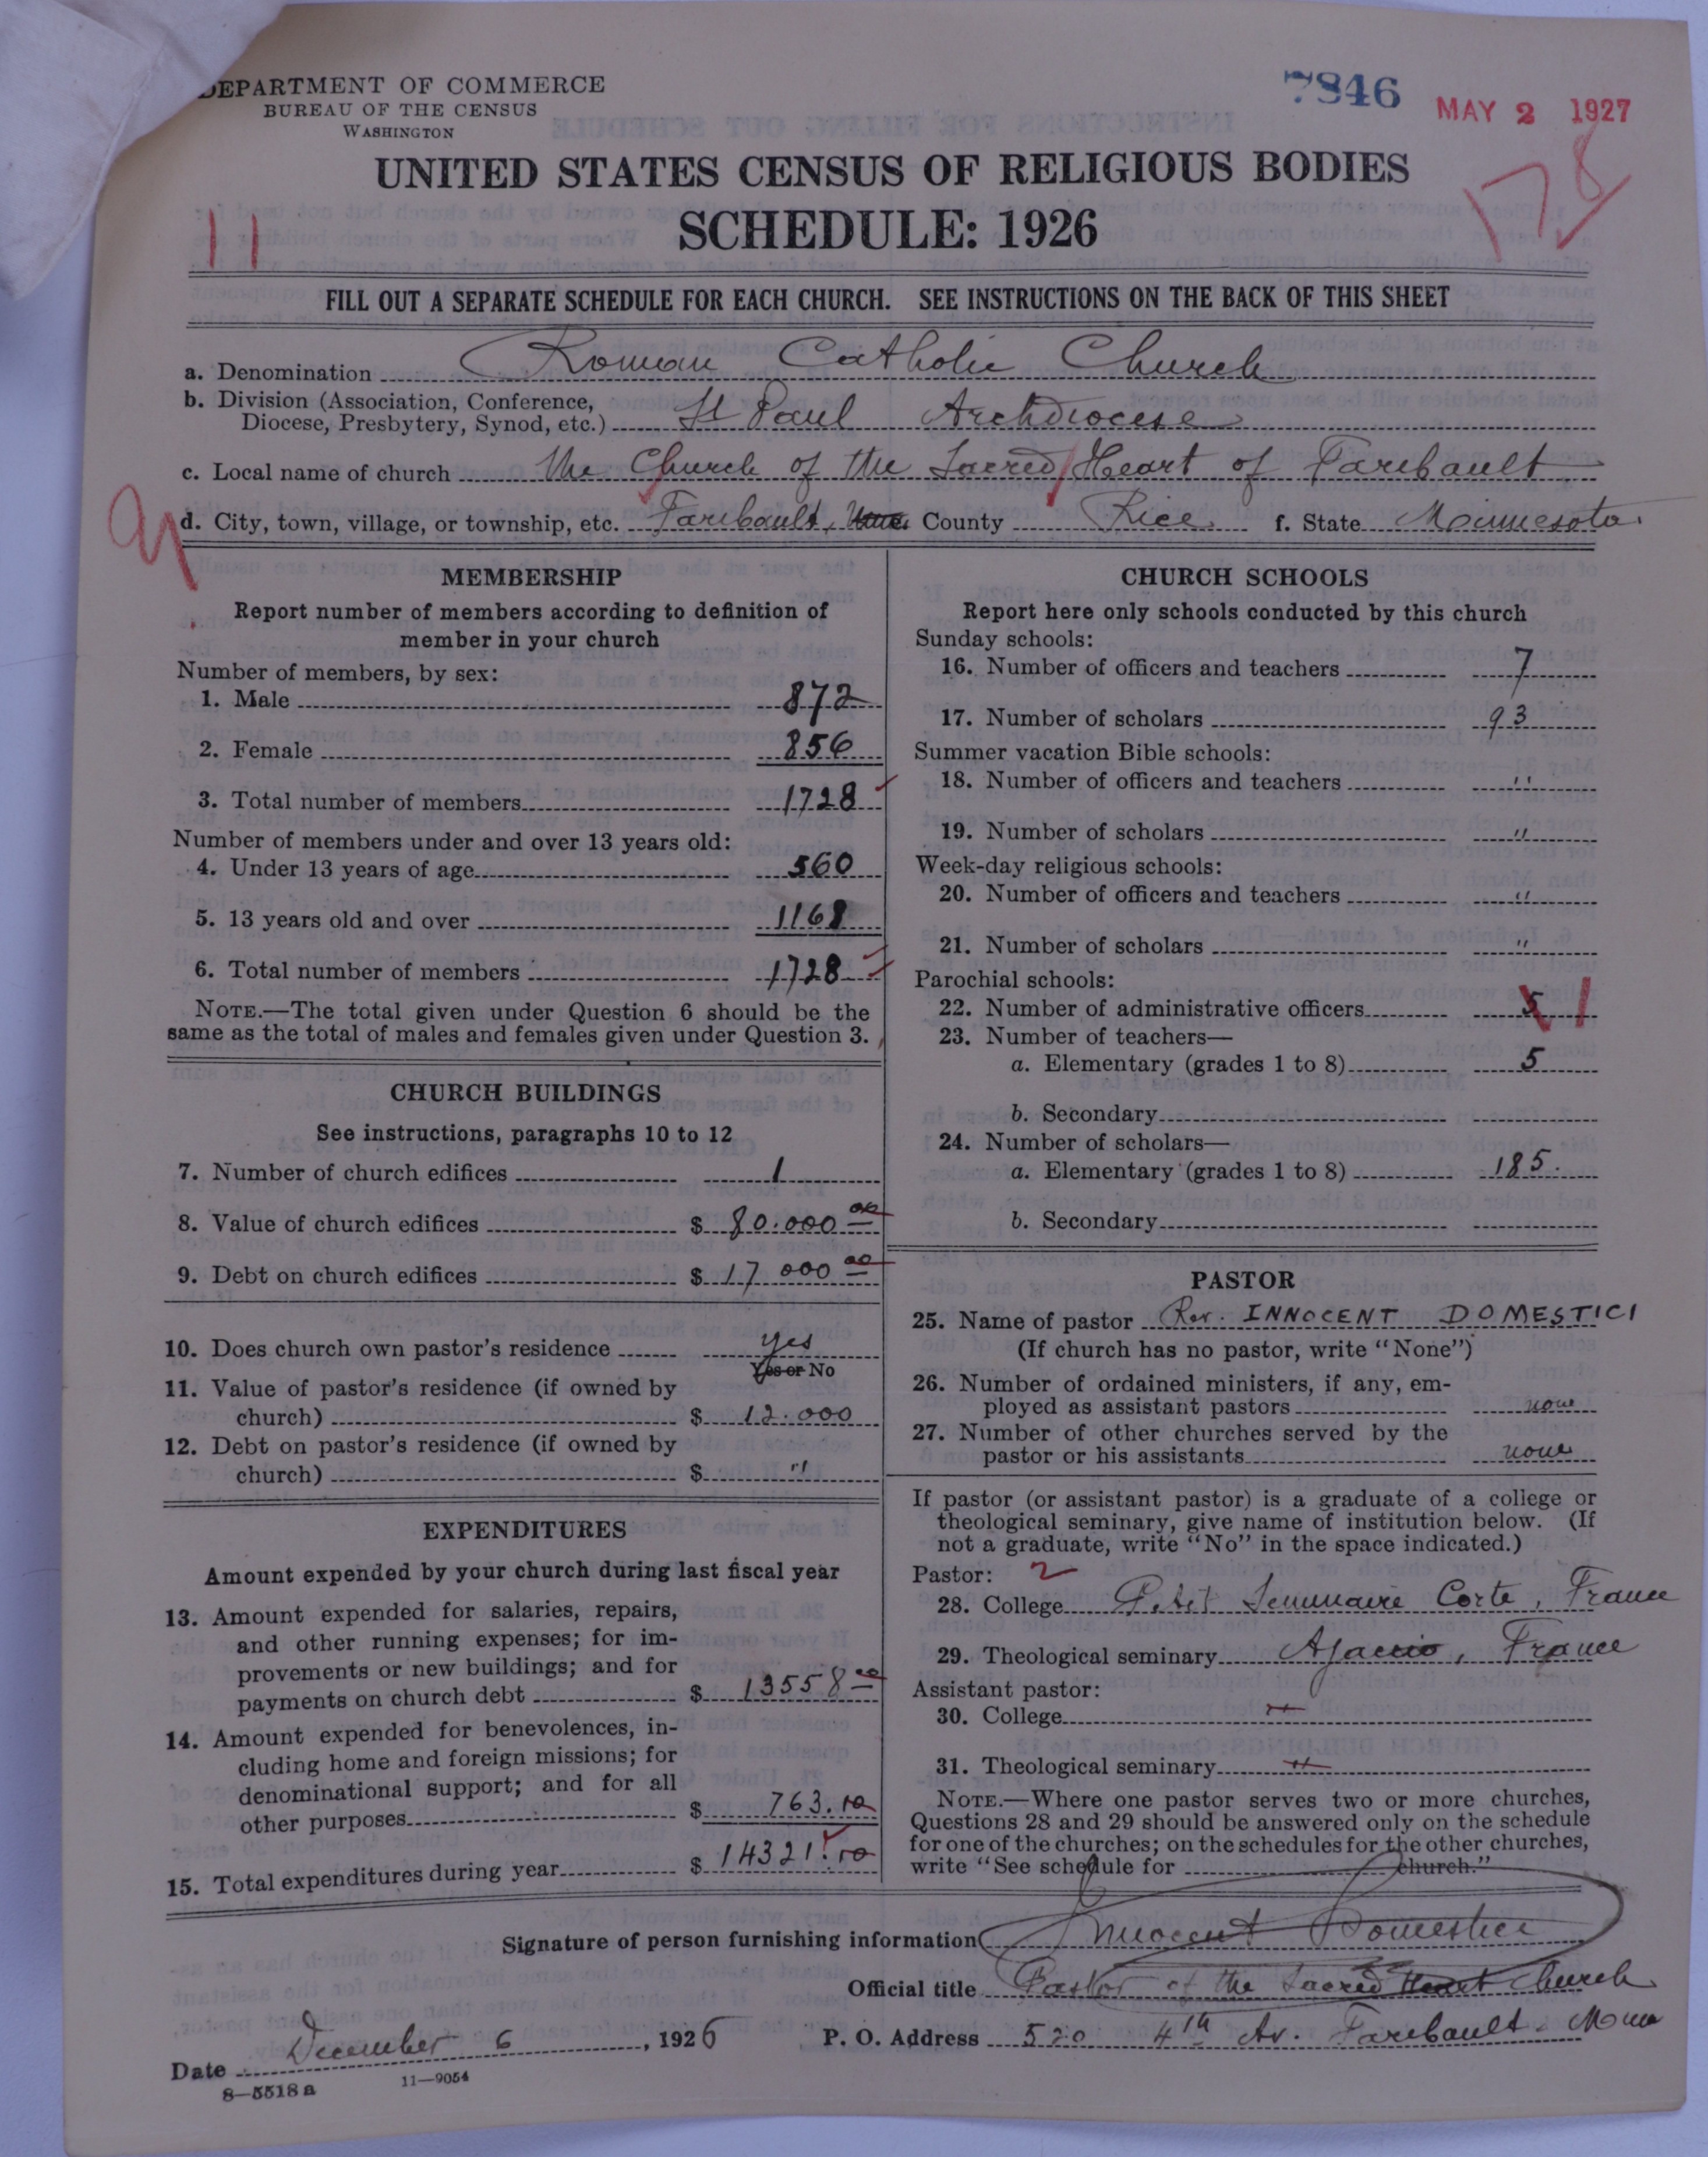 DEPARTMENT OF COMMERCE
BUREAU OF THE CENSUS
WASHINGTON
7846
MAY 2 1927
178
11
UNITED STATES CENSUS OF RELIGIOUS BODIES
SCHEDULE: 1926
FILL OUT A SEPARATE SCHEDULE FOR EACH CHURCH. SEE INSTRUCTIONS ON THE BACK OF THIS SHEET
a. Denomination Roman Catholic Church
b. Division (Association, Conference,
Diocese, Presbytery, Synod, etc.) St Paul Archdiocese
c. Local name of church the Church of the Sacred Heart of Faribault
d. City, town, village, or township, etc. Faribault, County Rice f. State Minnesota.
MEMBERSHIP
Report number of members according to definition of
member in your church
Number of members, by sex:
1. Male 872
2. Female 856
3. Total number of members 1728
Number of members under and over 13 years old:
4. Under 13 years of age 560
5. 13 years old and over 1168
6. Total number of members 1728
NOTE.—The total given under Question 6 should be the
same as the total of males and females given under Question 3.
CHURCH BUILDINGS
See instructions, paragraphs 10 to 12
7. Number of church edifices 1
8. Value of church edifices $ 80.000 00
9. Debt on church edifices $ 17 000 00
10. Does church own pastor's residence yes
Yes or No
11. Value of pastor's residence (if owned by
church) $ 12.000
12. Debt on pastor's residence (if owned by
church) $ "
EXPENDITURES
Amount expended by your church during last fiscal year
13. Amount expended for salaries, repairs,
and other running expenses; for im-
provements or new buildings; and for
payments on church debt $ 13558 00
14. Amount expended for benevolences, in-
cluding home and foreign missions; for
denominational support; and for all
other purposes $ 763.10
15. Total expenditures during year $ 14321.10
CHURCH SCHOOLS
Report here only schools conducted by this church
Sunday schools:
16. Number of officers and teachers 7
17. Number of scholars 93
Summer vacation Bible schools:
18. Number of officers and teachers "
19. Number of scholars "
Week-day religious schools:
20. Number of officers and teachers "
21. Number of scholars "
Parochial schools:
22. Number of administrative officers 5 1
23. Number of teachers—
a. Elementary (grades 1 to 8) 5
b. Secondary
24. Number of scholars—
a. Elementary (grades 1 to 8) 185.
b. Secondary
PASTOR
25. Name of pastor Rev. INNOCENT DOMESTICI
(If church has no pastor, write "None")
26. Number of ordained ministers, if any, em-
ployed as assistant pastors none
27. Number of other churches served by the
pastor or his assistants none
If pastor (or assistant pastor) is a graduate of a college or
theological seminary, give name of institution below. (If
not a graduate, write "No" in the space indicated.)
Pastor: 2
28. College Petit Seminaire Corte, France
29. Theological seminary Ajaccio, France
Assistant pastor:
30. College "
31. Theological seminary "
NOTE.—Where one pastor serves two or more churches,
Questions 28 and 29 should be answered only on the schedule
for one of the churches; on the schedules for the other churches,
write "See schedule for church."
Signature of person furnishing information Innocent Domestici
Official title Pastor of the Sacred Heart Church
Date December 6, 1926 P. O. Address 520 4th Av. Faribault. Minn
8—5518 a 11—9054